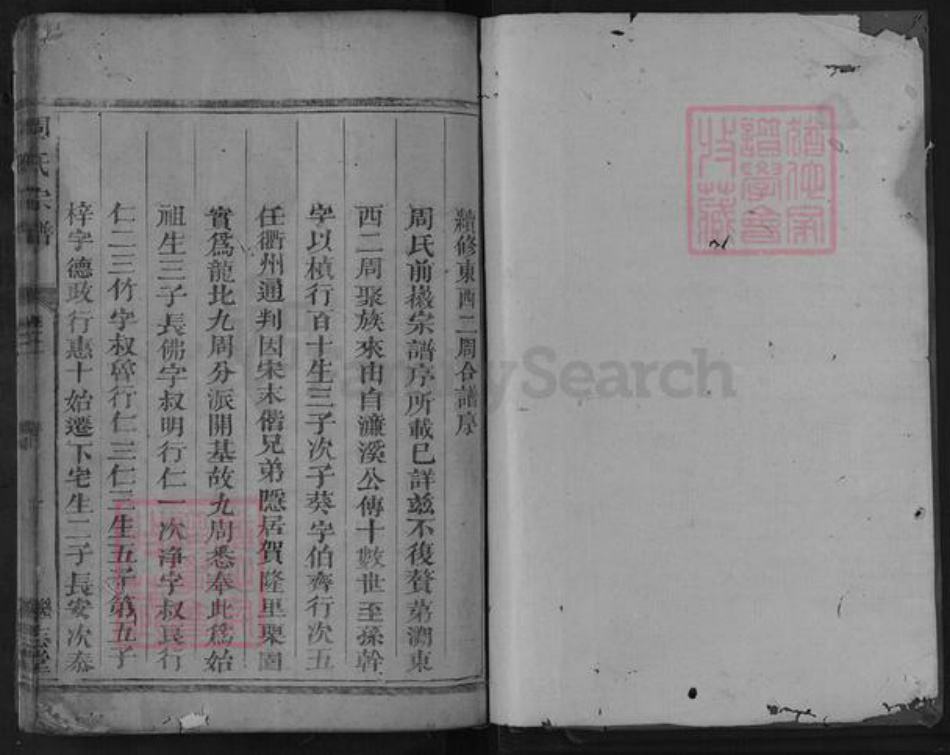 續修東西二周合譜序
周氏前撥宗譜序所載已詳茲不復贅第溯東
西二周聚族來由自濂溪公傳十數世至孫幹
字以楨行百十生三子次子葵字伯齊行次五
任衢州通判因宋末偕兄弟隱居賀隆里栗園
實爲龍北九周分派開基故九周悉奉此爲始
祖生三子長佛字叔明行仁一次淨字叔良行
仁二三竹字叔魯行仁三仁三生五子第五子
梓字德政行惠十始遷下宅生二子長安次泰
周氏宗譜
FamilySearch
譜學會
收藏